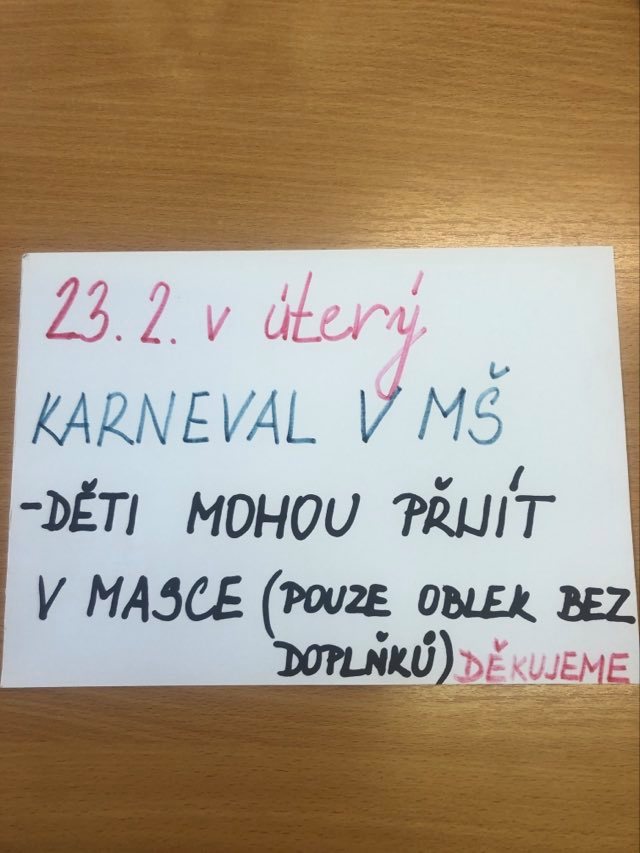 23. 2. v úterý
KARNEVAL V MŠ
-DĚTI MOHOU PŘIJÍT
V MASCE (POUZE OBLEK BEZ
DOPLŇKŮ) DĚKUJEME